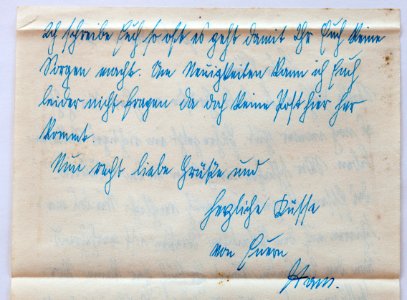 Ich schreibe Euch so oft es geht damit Ihr Euch keine
Sorgen macht. Um Neuigkeiten kann ich Euch
leider nicht fragen da doch keine Post hier her
kommt.
Nun recht liebe Grüße und
herzliche Küsse
von Euern